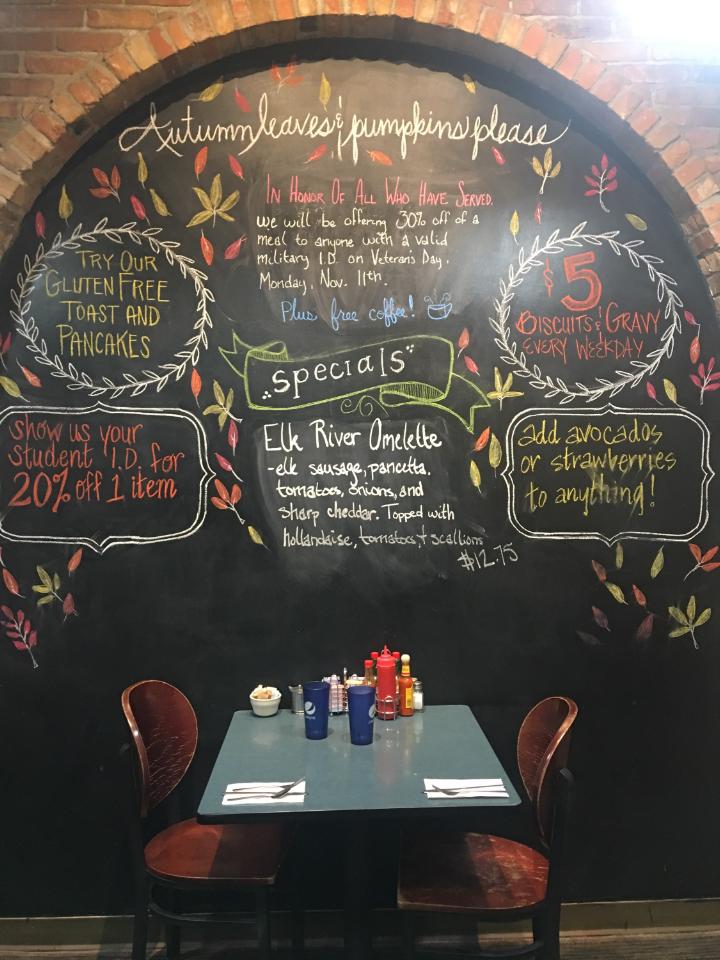 Autumn leaves & pumpkins please
In Honor Of All Who Have Served.
we will be offering 30% off of a
meal to anyone with a valid
military I.D. on Veteran's Day,
Monday, Nov. 11th.
Plus free coffee!
Try Our
Gluten Free
Toast and
Pancakes
$5
Biscuits & Gravy
Every Weekday
"specials"
show us your
student I.D. for
20% off 1 item
Elk River Omelette
-elk sausage, pancetta,
tomatoes, onions, and
sharp cheddar. Topped with
hollandaise, tomatoes, & scallions
$12.75
add avocados
or strawberries
to anything!
pepsi